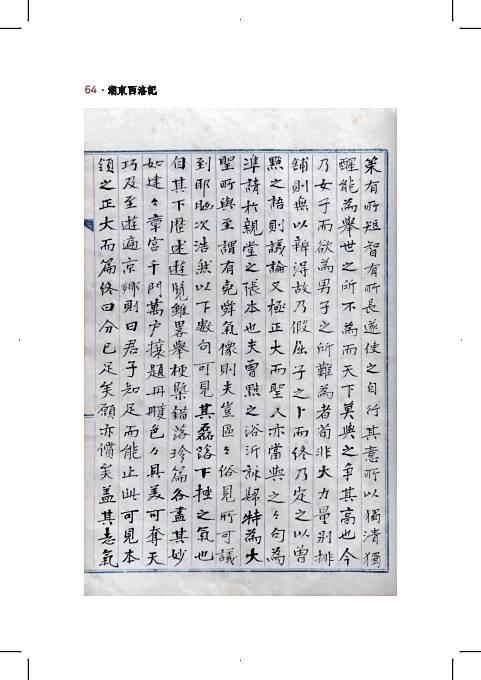 64 · 湖東西洛記
策有所短智有所長遂使之自行其意所以獨清獨
醒能為舉世之所不為而天下莫與之爭其高也今
乃女子而欲為男子之所難為者苟非大力量別排
鋪則無以辨得故乃假屈子之卜而終乃定之以曾
點之語則議論又極正大而聖人亦當與之々句為
準請於親堂之張本也夫曾點之浴沂詠歸特為大
聖所與至謂有堯舜氣像則夫豈區々俗見所可議
到耶 次浩然以下數句可見其磊落下極之氣也
自其下歷述遊覽雖畧舉梗槩錯落珍篇各盡其妙
如建々章宮千門萬戶攘題丹雘色々具美可奪天
巧及至遊遍京鄉則曰君子知足而能止此可見本
領之正大而篇終曰分已足矣願亦償矣盖其意氣